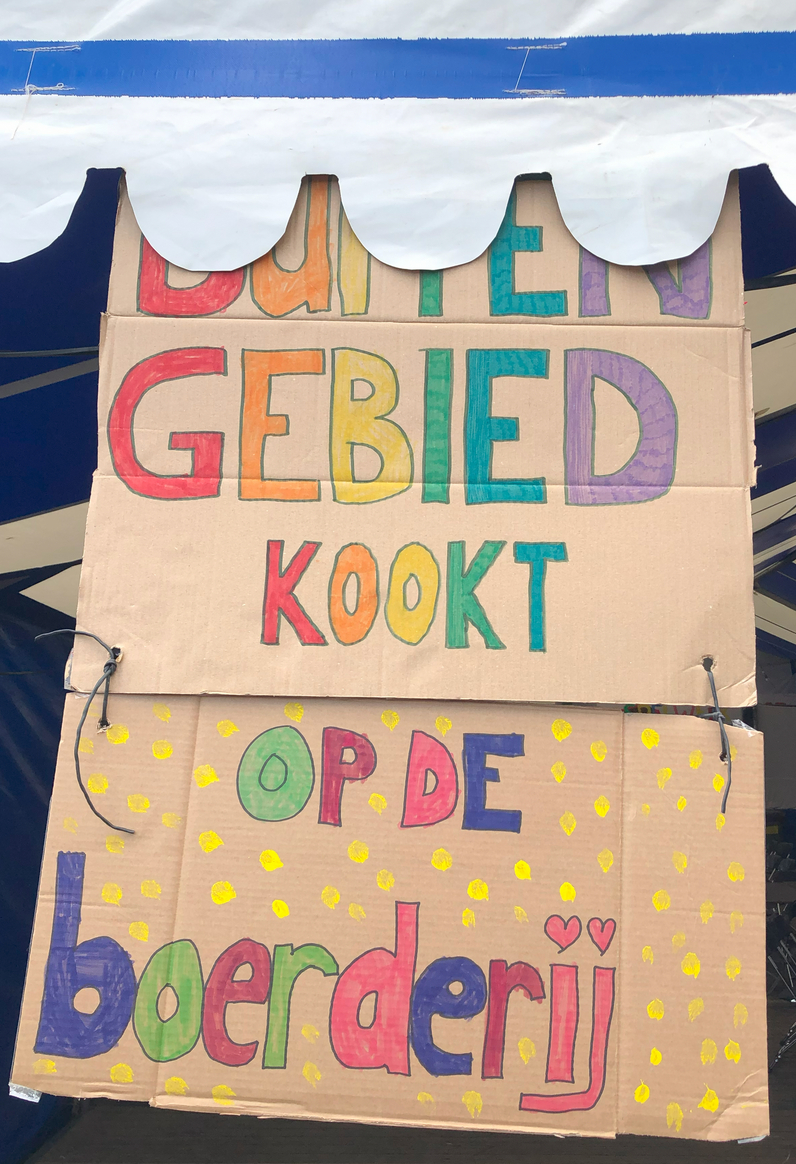 BUITEN
GEBIED
KOOKT
OP DE
boerderij